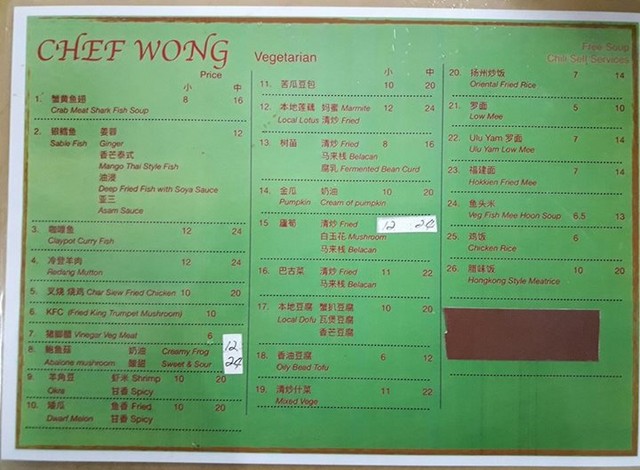 CHEF WONG
Price
小 中
1. 蟹黄鱼翅 8 16
Crab Meat Shark Fish Soup
2. 银鳕鱼 姜蓉 12
Sable Fish Ginger
香芒泰式
Mango Thai Style Fish
油浸
Deep Fried Fish with Soya Sauce
亚三
Asam Sauce
3. 咖喱鱼 12 24
Claypot Curry Fish
4. 冷登羊肉 12 24
Redang Mutton
5. 叉烧.烧鸡 Char Siew Fried Chicken 10 20
6. KFC (Fried King Trumpet Mushroom) 10
7. 猪脚醋 Vinegar Veg Meat 6
8. 鲍鱼菇 奶油 Creamy Frog 12
Abalone mushroom 酸甜 Sweet & Sour 24
9. 羊角豆 虾米 Shrimp 10 20
Okra 甘香 Spicy
10. 矮瓜 鱼香 Fried 10 20
Dwarf Melon 甘香 Spicy
Vegetarian
小 中
11. 苦瓜豆包 10 20
12. 本地莲藕 妈蜜 Marmite 12 24
Local Lotus 清炒 Fried
13. 树苗 清炒 Fried 8 16
马来栈 Belacan
腐乳 Fermented Bean Curd
14. 金瓜 奶油 10 20
Pumpkin Cream of pumpkin
15 芦荀 清炒 Fried 12 24
白玉花 Mushroom
马来栈 Belacan
16. 巴古菜 清炒 Fried 11 22
马来栈 Belacan
17. 本地豆腐 蟹扒豆腐 10 20
Local Dofu 瓦煲豆腐
香芒豆腐
18. 香油豆腐 6 12
Oily Beed Tofu
19. 清炒什菜 11 22
Mixed Vege
Free Soup
Chili Self Services
20. 扬州炒饭 7 14
Oriental Fried Rice
21. 罗面 5 10
Low Mee
22. Ulu Yam 罗面 7 14
Ulu Yam Low Mee
23. 福建面 7 14
Hokkien Fried Mee
24. 鱼头米
Veg Fish Mee Hoon Soup 6.5 13
25. 鸡饭 6
Chicken Rice
26. 腊味饭 10 20
Hongkong Style Meatrice